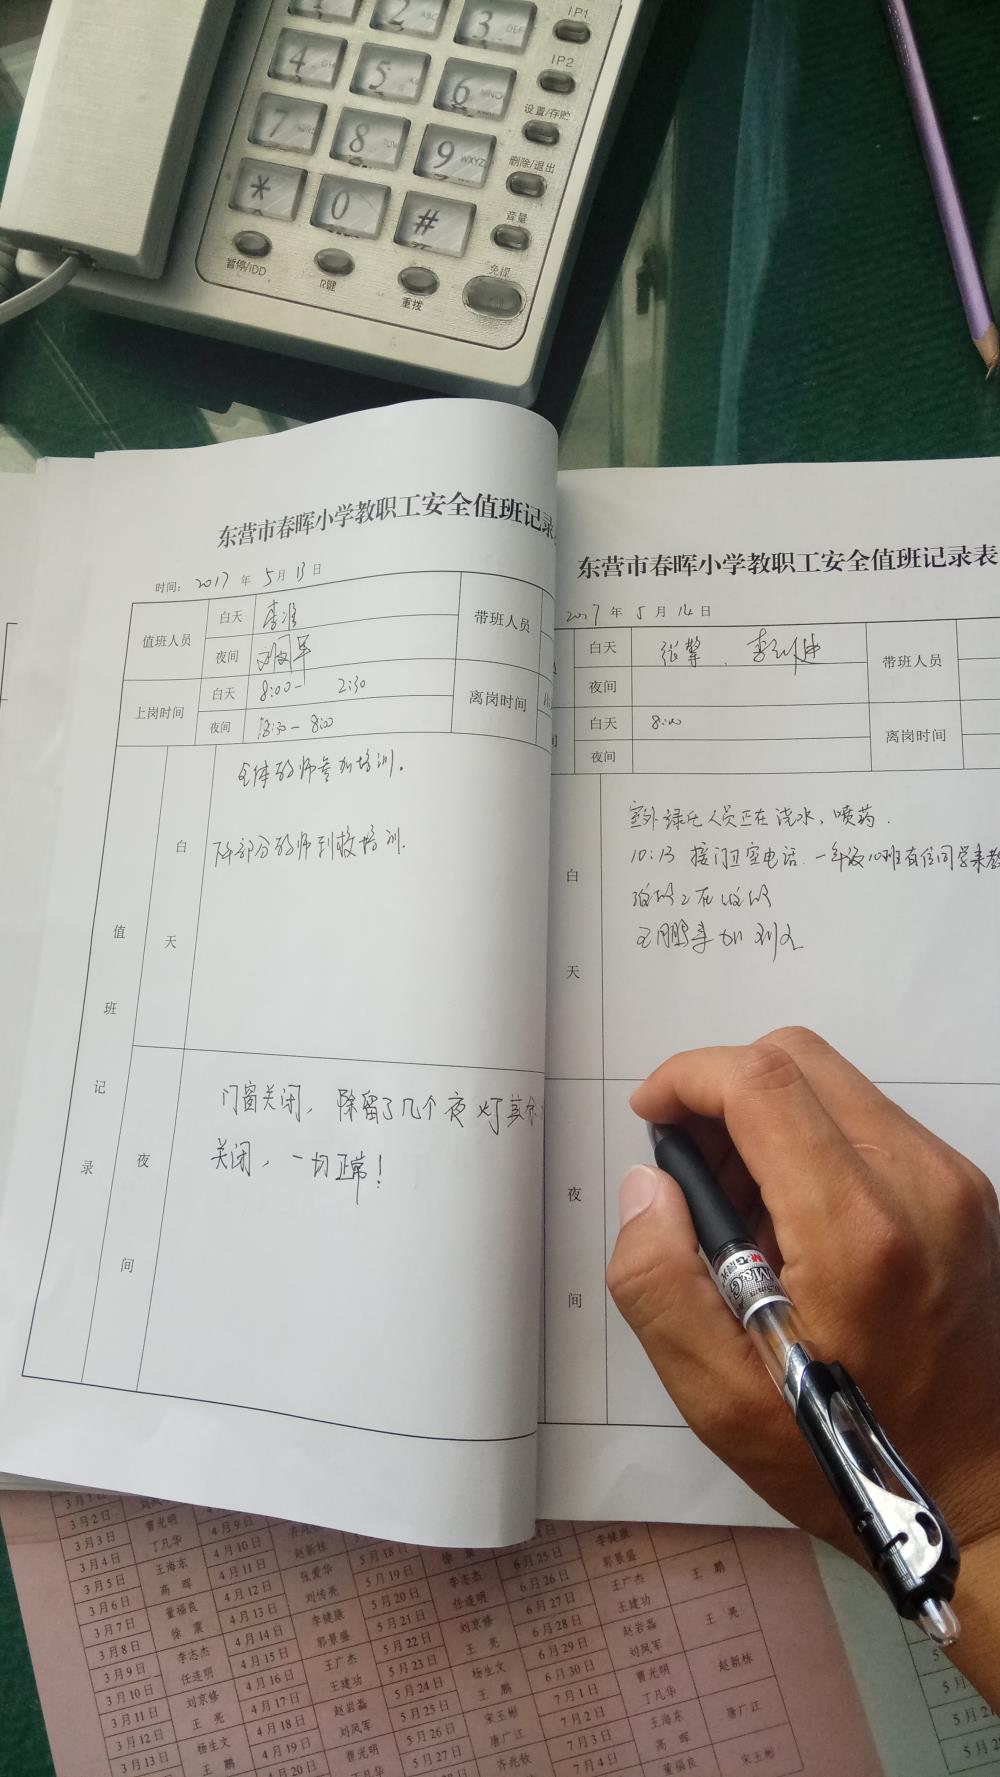 1
2 ABC
3 DEF
IP1
4 GHI
5 JKL
6 MNO
IP2
设置/存贮
7
8 TUV
9 WXYZ
删除/退出
*
0
#
音量
暂停/IDD
R键
重拨
免提
东营市春晖小学教职工安全值班记录
时间: 2017 年 5月 13 日
值班人员
白天
李准
带班人员
夜间
上岗时间
白天
8:00- 2:30
离岗时间
夜间
18:30-8:00
值班记录
白天
全体教师参加培训。
下午部分教师到校培训.
夜间
门窗关闭, 除留了几个夜灯其余
关闭, 一切正常!
东营市春晖小学教职工安全值班记录表
2017 年 5 月 14 日
白天
张擎、
带班人员
夜间
白天
8:00
离岗时间
夜间
白天
室外绿化人员正在浇水, 喷药.
10:13 接门卫室电话. 一年级10班有位同学来教
夜间
M&G
3月2日
3月3日 曹光明
3月4日 丁凡华
3月5日 王海东
3月6日 高晖
3月7日 董福良
3月8日 徐震
3月9日 李志杰
3月10日 任连明
3月11日 刘京修
3月12日 王亮
3月13日 杨生文
王鹏
4月9日
4月10日 赵新栋
4月11日 张爱华
4月12日 刘传亮
4月13日 李健康
4月14日 郭景盛
4月15日 王广杰
4月16日 王建功
4月17日 赵岩磊
4月18日 刘凤军
4月19日 曹光明
4月20日 丁凡华
5月18日 徐震
5月19日 李志杰
5月20日 任连明
5月21日 刘京修
5月22日 王亮
5月23日 杨生文
5月24日 王鹏
5月25日 宋玉彬
5月26日 唐广江
5月27日 齐兆钦
李健康
6月25日 郭景盛
6月26日 王广杰
6月27日 王建功
6月28日 赵岩磊
6月29日 刘凤军
6月30日 曹光明
7月1日 丁凡华
7月2日 王海东
7月3日 高晖
7月4日 董福良
王鹏
王亮
赵新栋
唐广江
宋玉彬